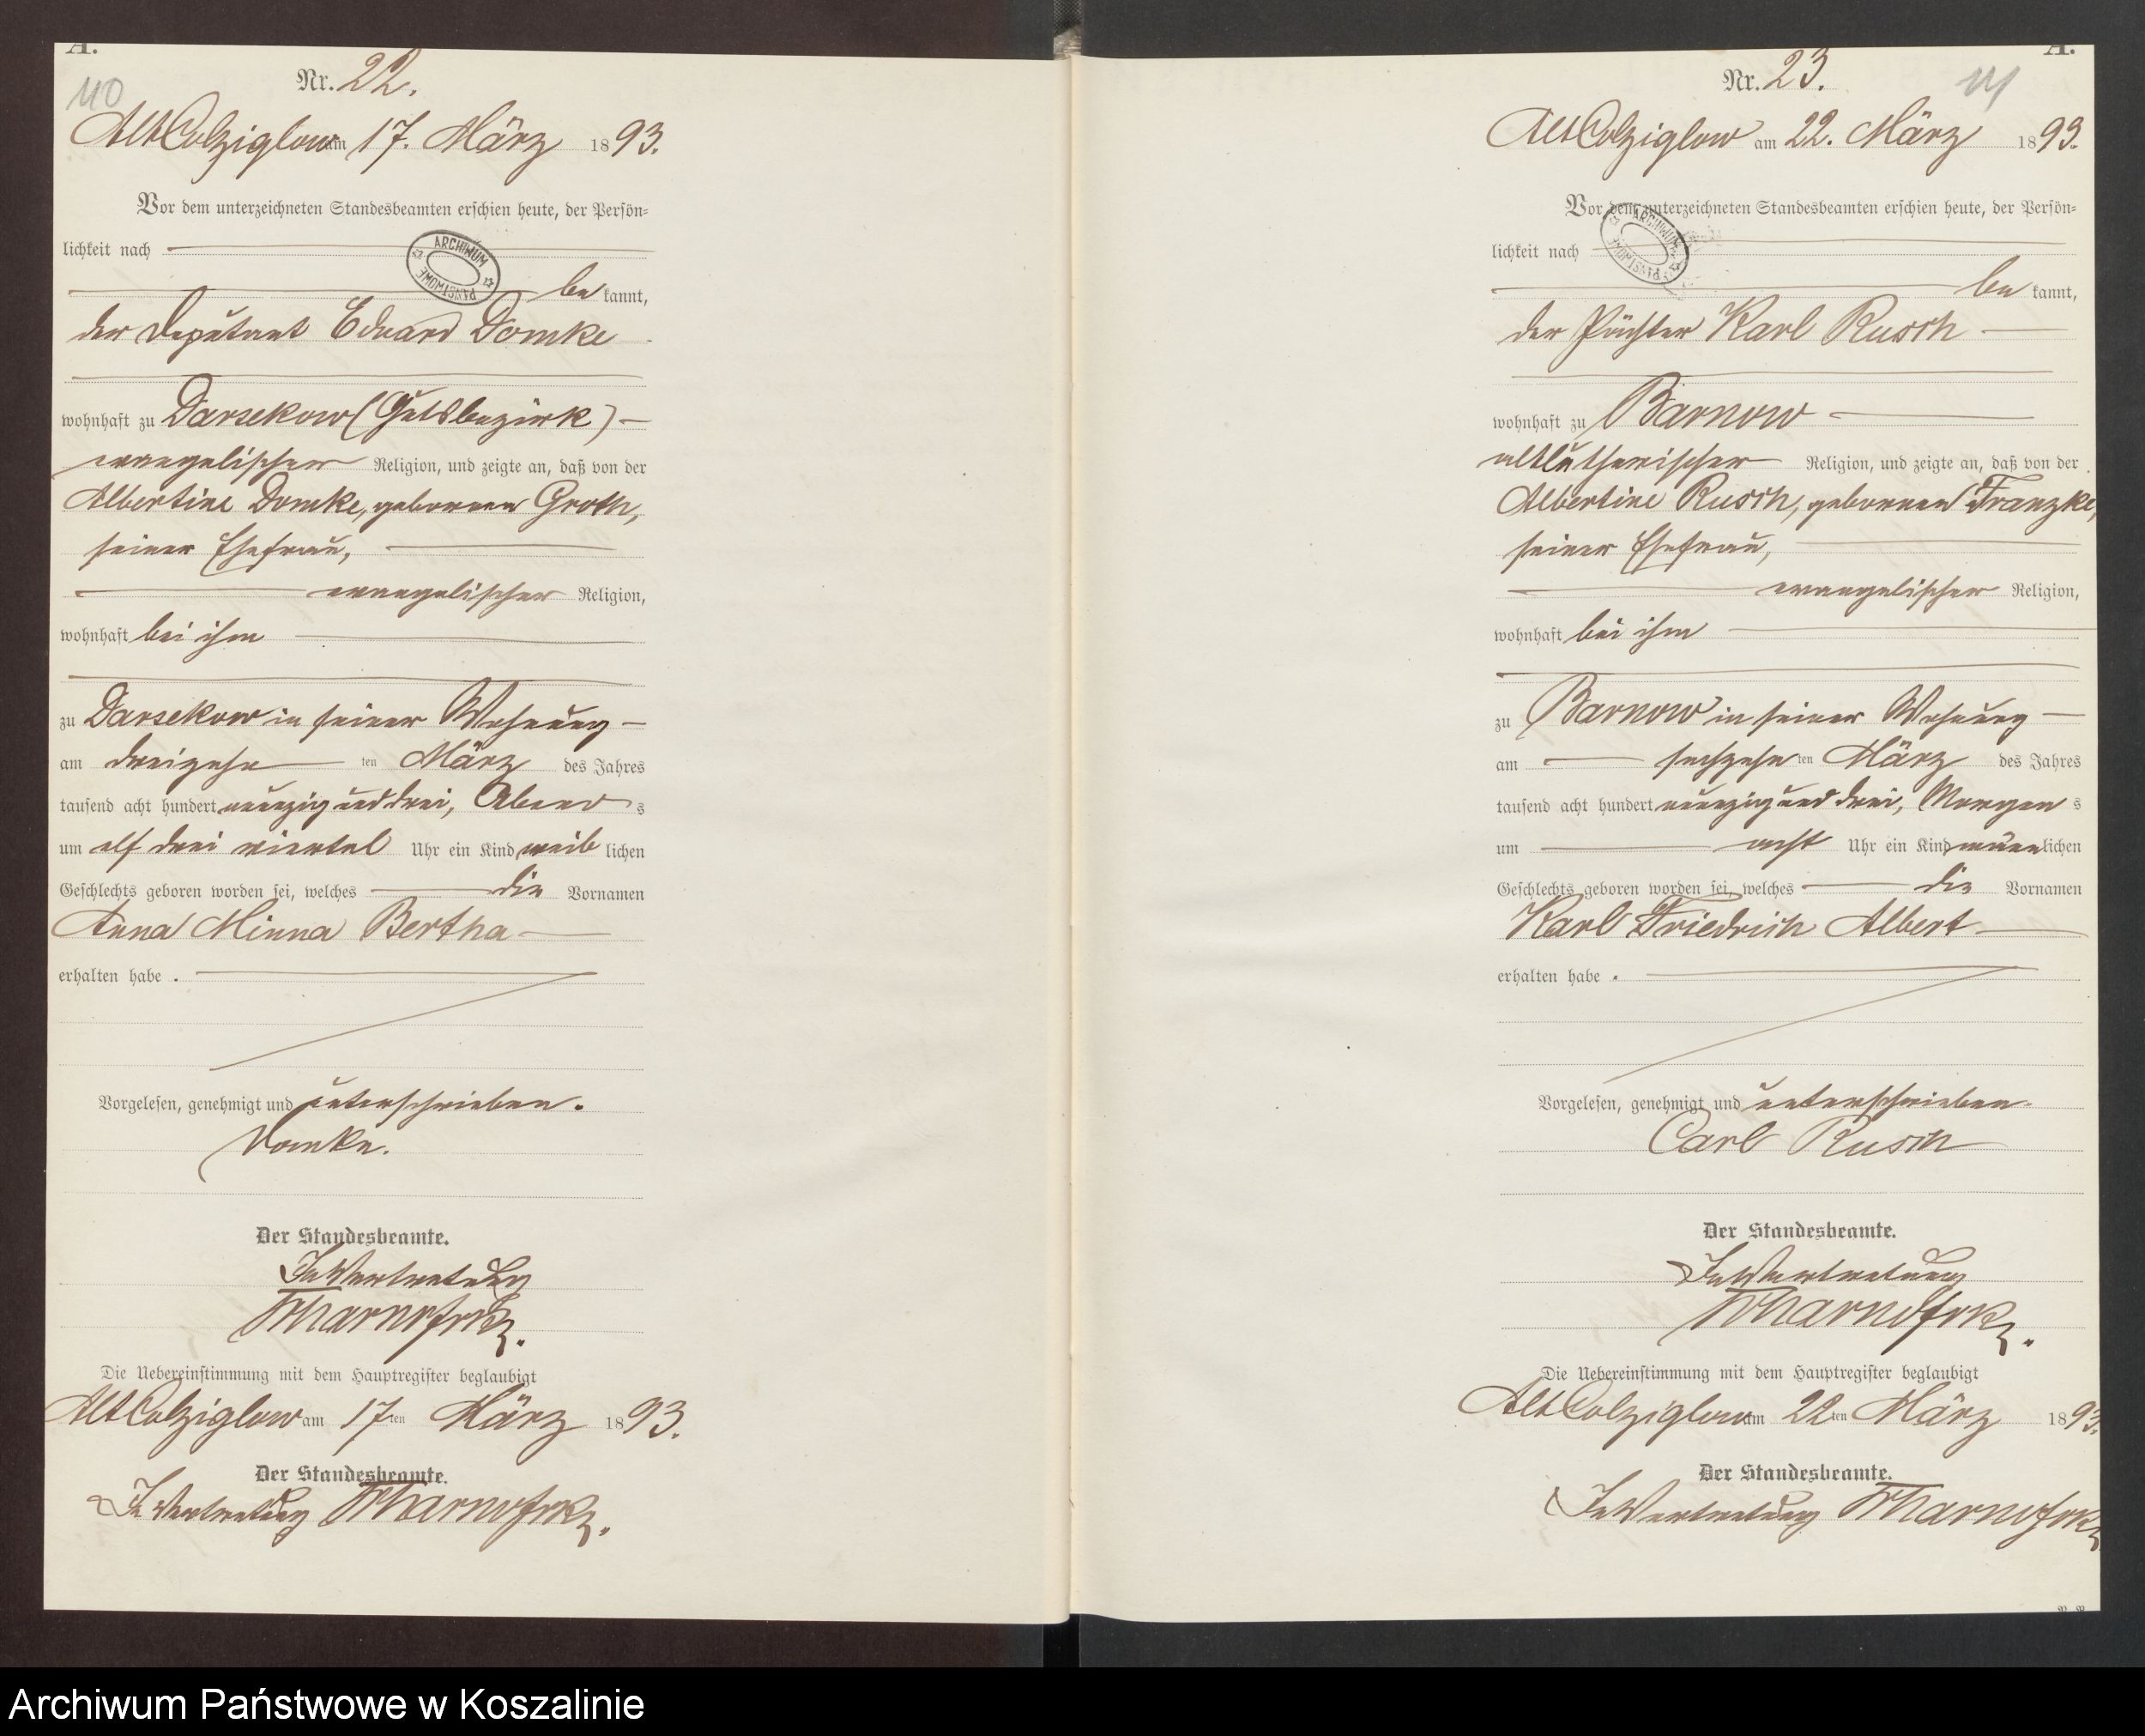 A.
110
Nr. 22.
Alt Colziglow am 17. März 1893.
Vor dem unterzeichneten Standesbeamten erschien heute, der Persön-
lichkeit nach
ARCHIWUM PAŃSTWOWE
be kannt,
der Deputant Eduard Domke
wohnhaft zu Darsekow (Gutsbezirk)
evangelischer Religion, und zeigte an, daß von der
Albertine Domke, geborenen Groth,
seiner Ehefrau,
evangelischer Religion,
wohnhaft bei ihm
zu Darsekow in seiner Wohnung
am dreizehn ten März des Jahres
tausend acht hundert neunzig und drei, Abend s
um elf drei viertel Uhr ein Kind weib lichen
Geschlechts geboren worden sei, welches die Vornamen
Anna Minna Bertha
erhalten habe.
Vorgelesen, genehmigt und unterschrieben.
Domke.
Der Standesbeamte.
In Vertretung
Die Uebereinstimmung mit dem Hauptregister beglaubigt
Alt Colziglow am 17ten März 1893.
Der Standesbeamte.
In Vertretung
A.
111
Nr. 23.
Alt Colziglow am 22. März 1893.
Vor dem unterzeichneten Standesbeamten erschien heute, der Persön-
lichkeit nach
ARCHIWUM PAŃSTWOWE
be kannt,
der Pächter Karl Rusch
wohnhaft zu Barnow
altlutherischer Religion, und zeigte an, daß von der
Albertine Rusch, geborenen Franzke,
seiner Ehefrau,
evangelischer Religion,
wohnhaft bei ihm
zu Barnow in seiner Wohnung
am sechzehn ten März des Jahres
tausend acht hundert neunzig und drei, Morgen s
um acht Uhr ein Kind männlichen
Geschlechts geboren worden sei, welches die Vornamen
Karl Friedrich Albert
erhalten habe.
Vorgelesen, genehmigt und unterschrieben.
Carl Rusch
Der Standesbeamte.
In Vertretung
Die Uebereinstimmung mit dem Hauptregister beglaubigt
Alt Colziglow am 22ten März 1893.
Der Standesbeamte.
In Vertretung
Archiwum Państwowe w Koszalinie